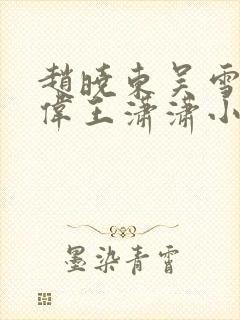 趙曉東吴雪
偉王潇潇小
墨染青霄